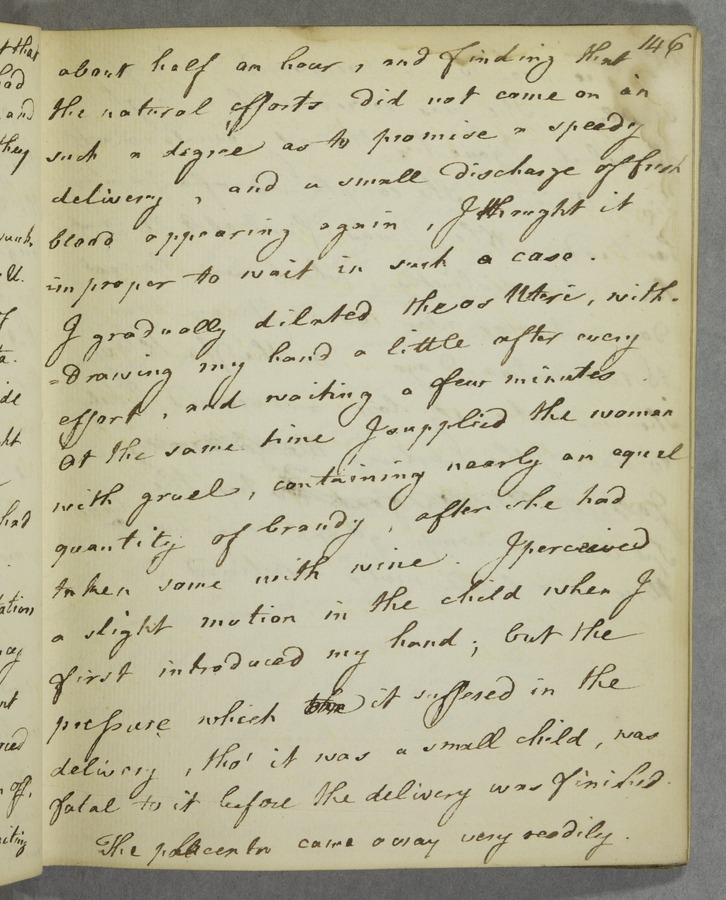 146
about half an hour, and finding that
the natural efforts did not come on in
such a degree as to promise a speedy
delivery, and a small discharge of fresh
blood appearing again, I thought it
improper to wait in such a case.
I gradually dilated the os Uteri, with-
=drawing my hand a little after every
effort, and waiting a few minutes.
At the same time I supplied the woman
with gruel, containing nearly an equal
quantity of brandy, after she had
taken some with wine. I perceived
a slight motion in the child when I
first introduced my hand; but the
pressure which it suffered in the
delivery, tho' it was a small child, was
fatal to it before the delivery was finished.
The placenta came away very readily.